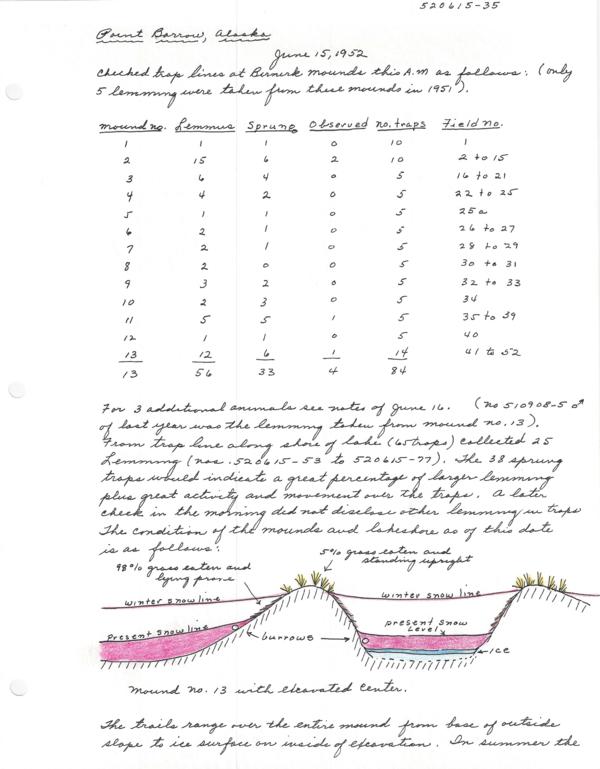 520615-35
Point Barrow, Alaska
June 15, 1952
Checked trap lines at Birnirk mounds this A.M as follows: (only
5 lemming were taken from these mounds in 1951).
mound no. Lemmus Sprung Observed no. traps Field no.
1 1 1 0 10 1
2 15 6 2 10 2 to 15
3 6 4 0 5 16 to 21
4 4 2 0 5 22 to 25
5 1 1 0 5 25a
6 2 1 0 5 26 to 27
7 2 1 0 5 28 to 29
8 2 0 0 5 30 to 31
9 3 2 0 5 32 to 33
10 2 3 0 5 34
11 5 5 1 5 35 to 39
12 1 1 0 5 40
13 12 6 1 14 41 to 52
13 56 33 4 84
For 3 additional animals see notes of June 16. (no 510908-5 ♂
of last year was the lemming taken from mound no. 13).
From trap line along shore of lake (65 traps) collected 25
Lemming (nos. 520615-53 to 520615-77). The 38 sprung
traps would indicate a great percentage of larger lemming
plus great activity and movement over the traps. A later
check in the morning did not disclose other lemming in traps
The condition of the mounds and lakeshore as of this date
is as follows:
98% grass eaten and
lying prone
5% grass eaten and
standing upright
winter snow line
winter snow line
Present snow line
burrows
present snow
Level
ICE
Mound no. 13 with excavated center.
The trails range over the entire mound from base of outside
slope to ice surface on inside of excavation. In summer the